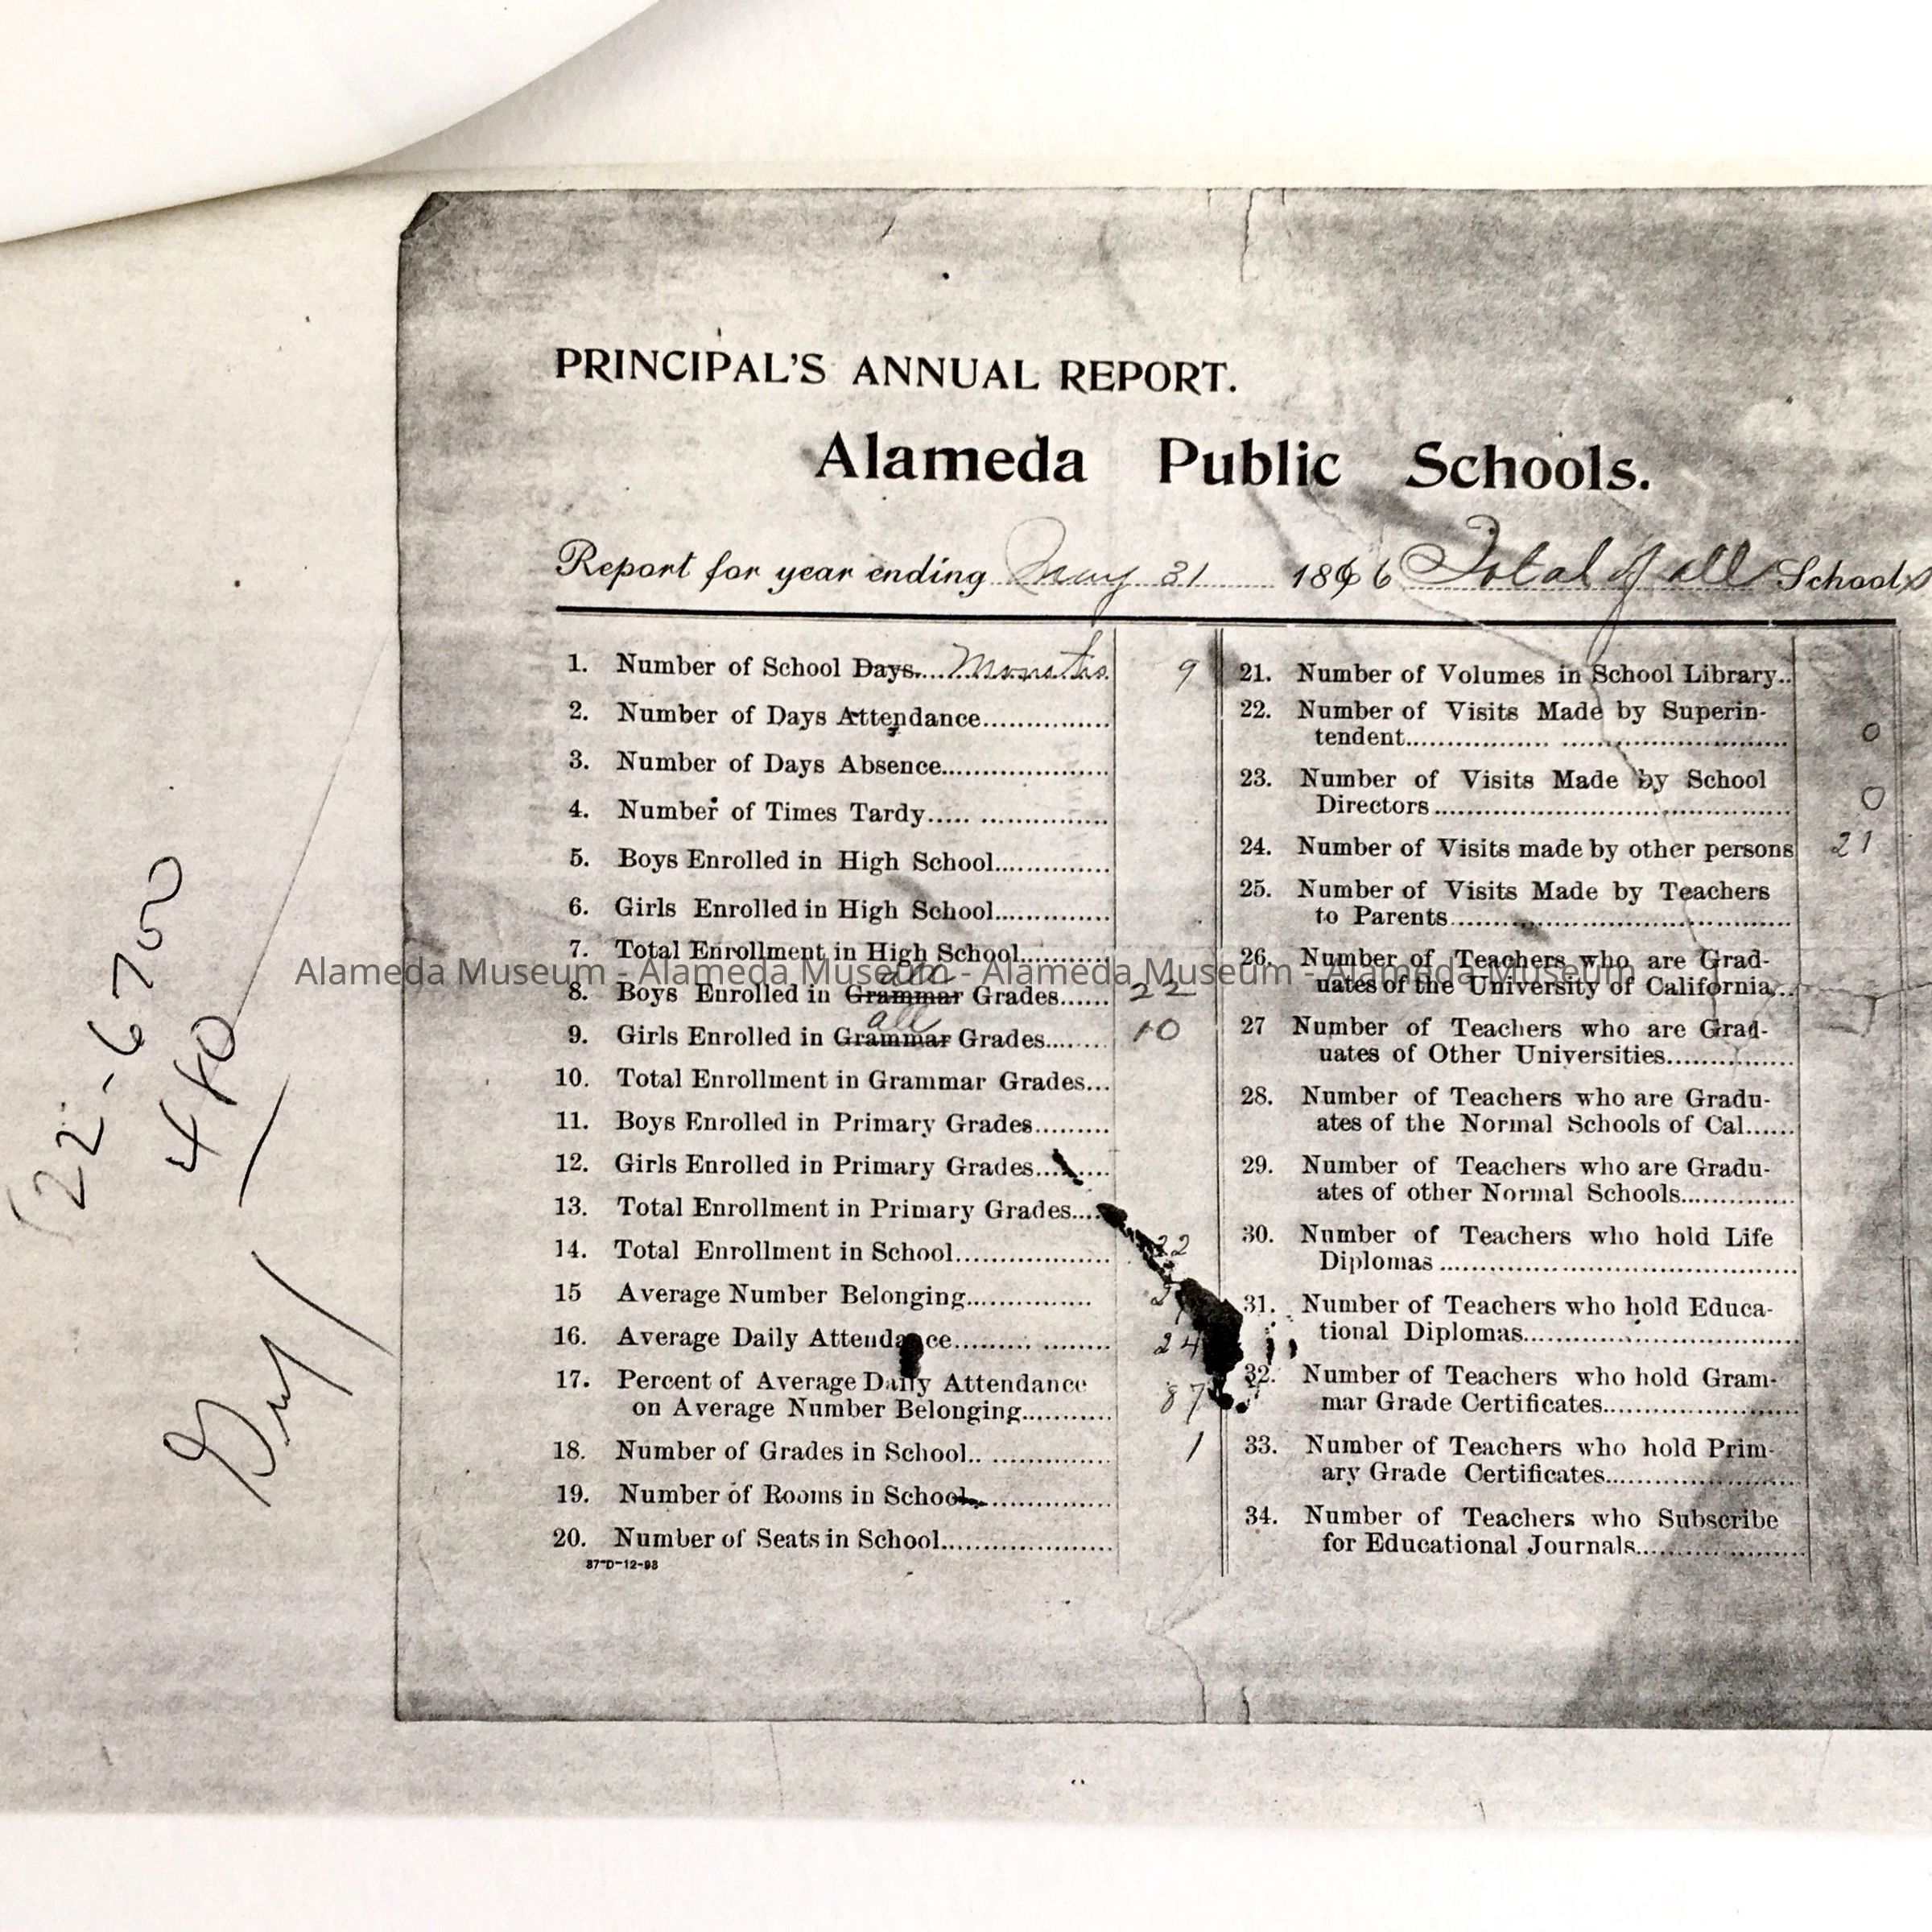 PRINCIPAL'S ANNUAL REPORT.
Alameda Public Schools.
Report for year ending May 31 1896 Total of all Schools
1. Number of School Days.... Months 9
2. Number of Days Attendance...............
3. Number of Days Absence.....................
4. Number of Times Tardy..... ...............
5. Boys Enrolled in High School..............
6. Girls Enrolled in High School..............
7. Total Enrollment in High School...........
all
8. Boys Enrolled in Grammar Grades...... 22
all
9. Girls Enrolled in Grammar Grades........ 10
10. Total Enrollment in Grammar Grades...
11. Boys Enrolled in Primary Grades.........
12. Girls Enrolled in Primary Grades.........
13. Total Enrollment in Primary Grades....
14. Total Enrollment in School..................
15 Average Number Belonging...............
16. Average Daily Attendance......... ........ 24
17. Percent of Average Daily Attendance
on Average Number Belonging........... 87
18. Number of Grades in School.. .............. 1
19. Number of Rooms in School................
20. Number of Seats in School....................
87-D-12-93
21. Number of Volumes in School Library..
22. Number of Visits Made by Superin-
tendent................. .......................... 0
23. Number of Visits Made by School
Directors.......................................... 0
24. Number of Visits made by other persons 21
25. Number of Visits Made by Teachers
to Parents........................................
26. Number of Teachers who are Grad-
uates of the University of California...
27 Number of Teachers who are Grad-
uates of Other Universities...............
28. Number of Teachers who are Gradu-
ates of the Normal Schools of Cal......
29. Number of Teachers who are Gradu-
ates of other Normal Schools.............
30. Number of Teachers who hold Life
Diplomas ..........................................
31. Number of Teachers who hold Educa-
tional Diplomas.................................
32. Number of Teachers who hold Gram-
mar Grade Certificates.......................
33. Number of Teachers who hold Prim-
ary Grade Certificates.......................
34. Number of Teachers who Subscribe
for Educational Journals....................
Alameda Museum - Alameda Museum - Alameda Museum - Alameda Museum